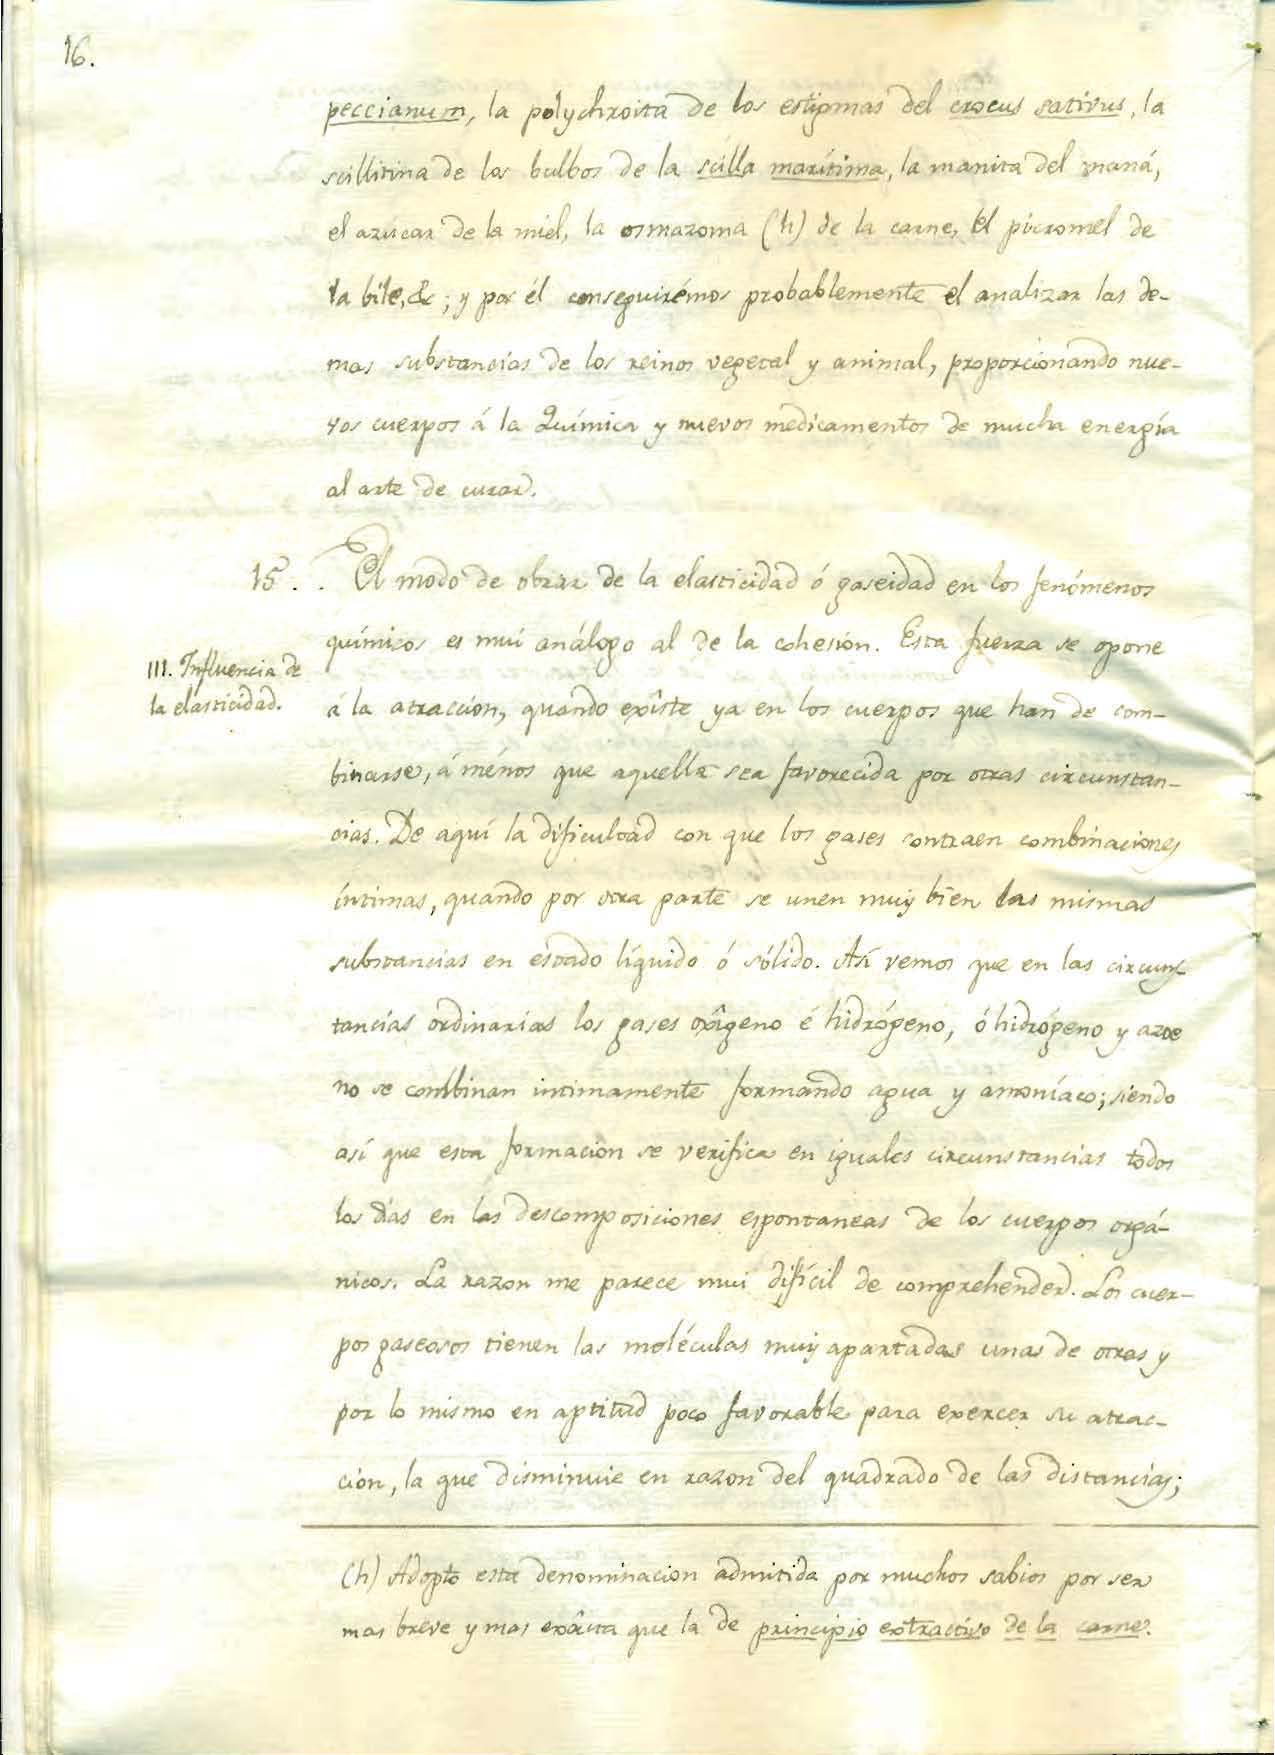 16.
peccianum, la polychroita de los estigmas del crocus sativus, la
scillitina de los bulbos de la scilla marítima, la manita del maná,
el azúcar de la miel, la osmazoma (h) de la carne, el picromel de
la bile, &c; y por él conseguirémos probablemente el analizar las de-
mas substancias de los reinos vegetal y animal, proporcionando nue-
vos cuerpos á la Química y nuevos medicamentos de mucha energía
al arte de curar.
15. . El modo de obrar de la elasticidad ó gaseidad en los fenómenos
químicos es mui análogo al de la cohesion. Esta fuerza se opone
III. Influencia de
la elasticidad.
á la atraccion, quando exîste ya en los cuerpos que han de com-
binarse, á ménos que aquella sea favorecida por otras circunstan-
cias. De aquí la dificultad con que los gases contraen combinaciones
íntimas, quando por otra parte se unen muy bien las mismas
substancias en estado líquido ó sólido. Así vemos que en las circuns-
tancias ordinarias los gases oxîgeno é hidrógeno, ó hidrógeno y azoe
no se combinan intimamente formando agua y amoníaco; siendo
así que esta formacion se verifica en iguales circunstancias todos
los dias en las descomposiciones espontaneas de los cuerpos orgá-
nicos. La razon me parece mui difícil de comprehender. Los cuer-
pos gaseosos tienen las moléculas muy apartadas unas de otras y
por lo mismo en aptitud poco favorable para exercer su atrac-
cion, la que disminuie en razon del quadrado de las distancias;
(h) Adopto esta denominacion admitida por muchos sabios por ser
mas breve y mas exâcta que la de principio extractivo de la carne.